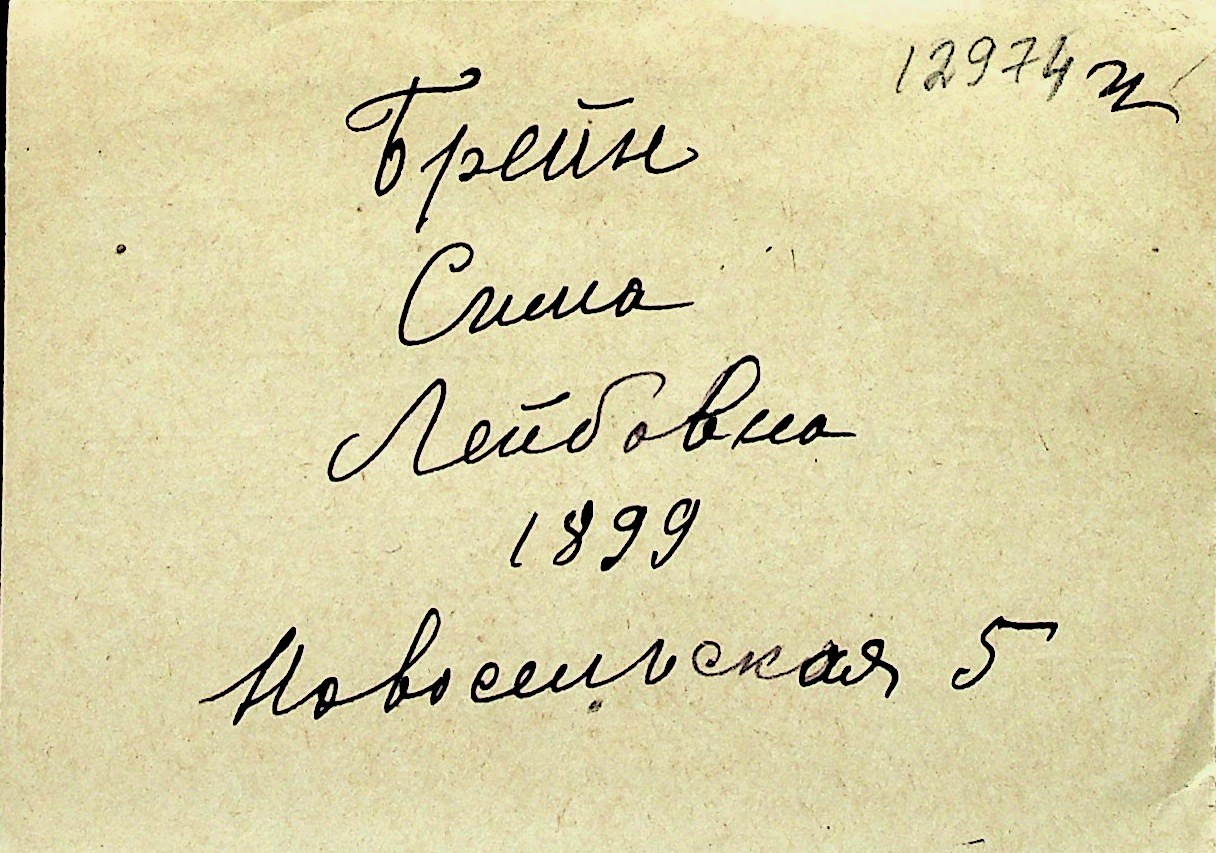 12974 и
Брейн
Сима
Лейбовна
1899
Новосельская 5